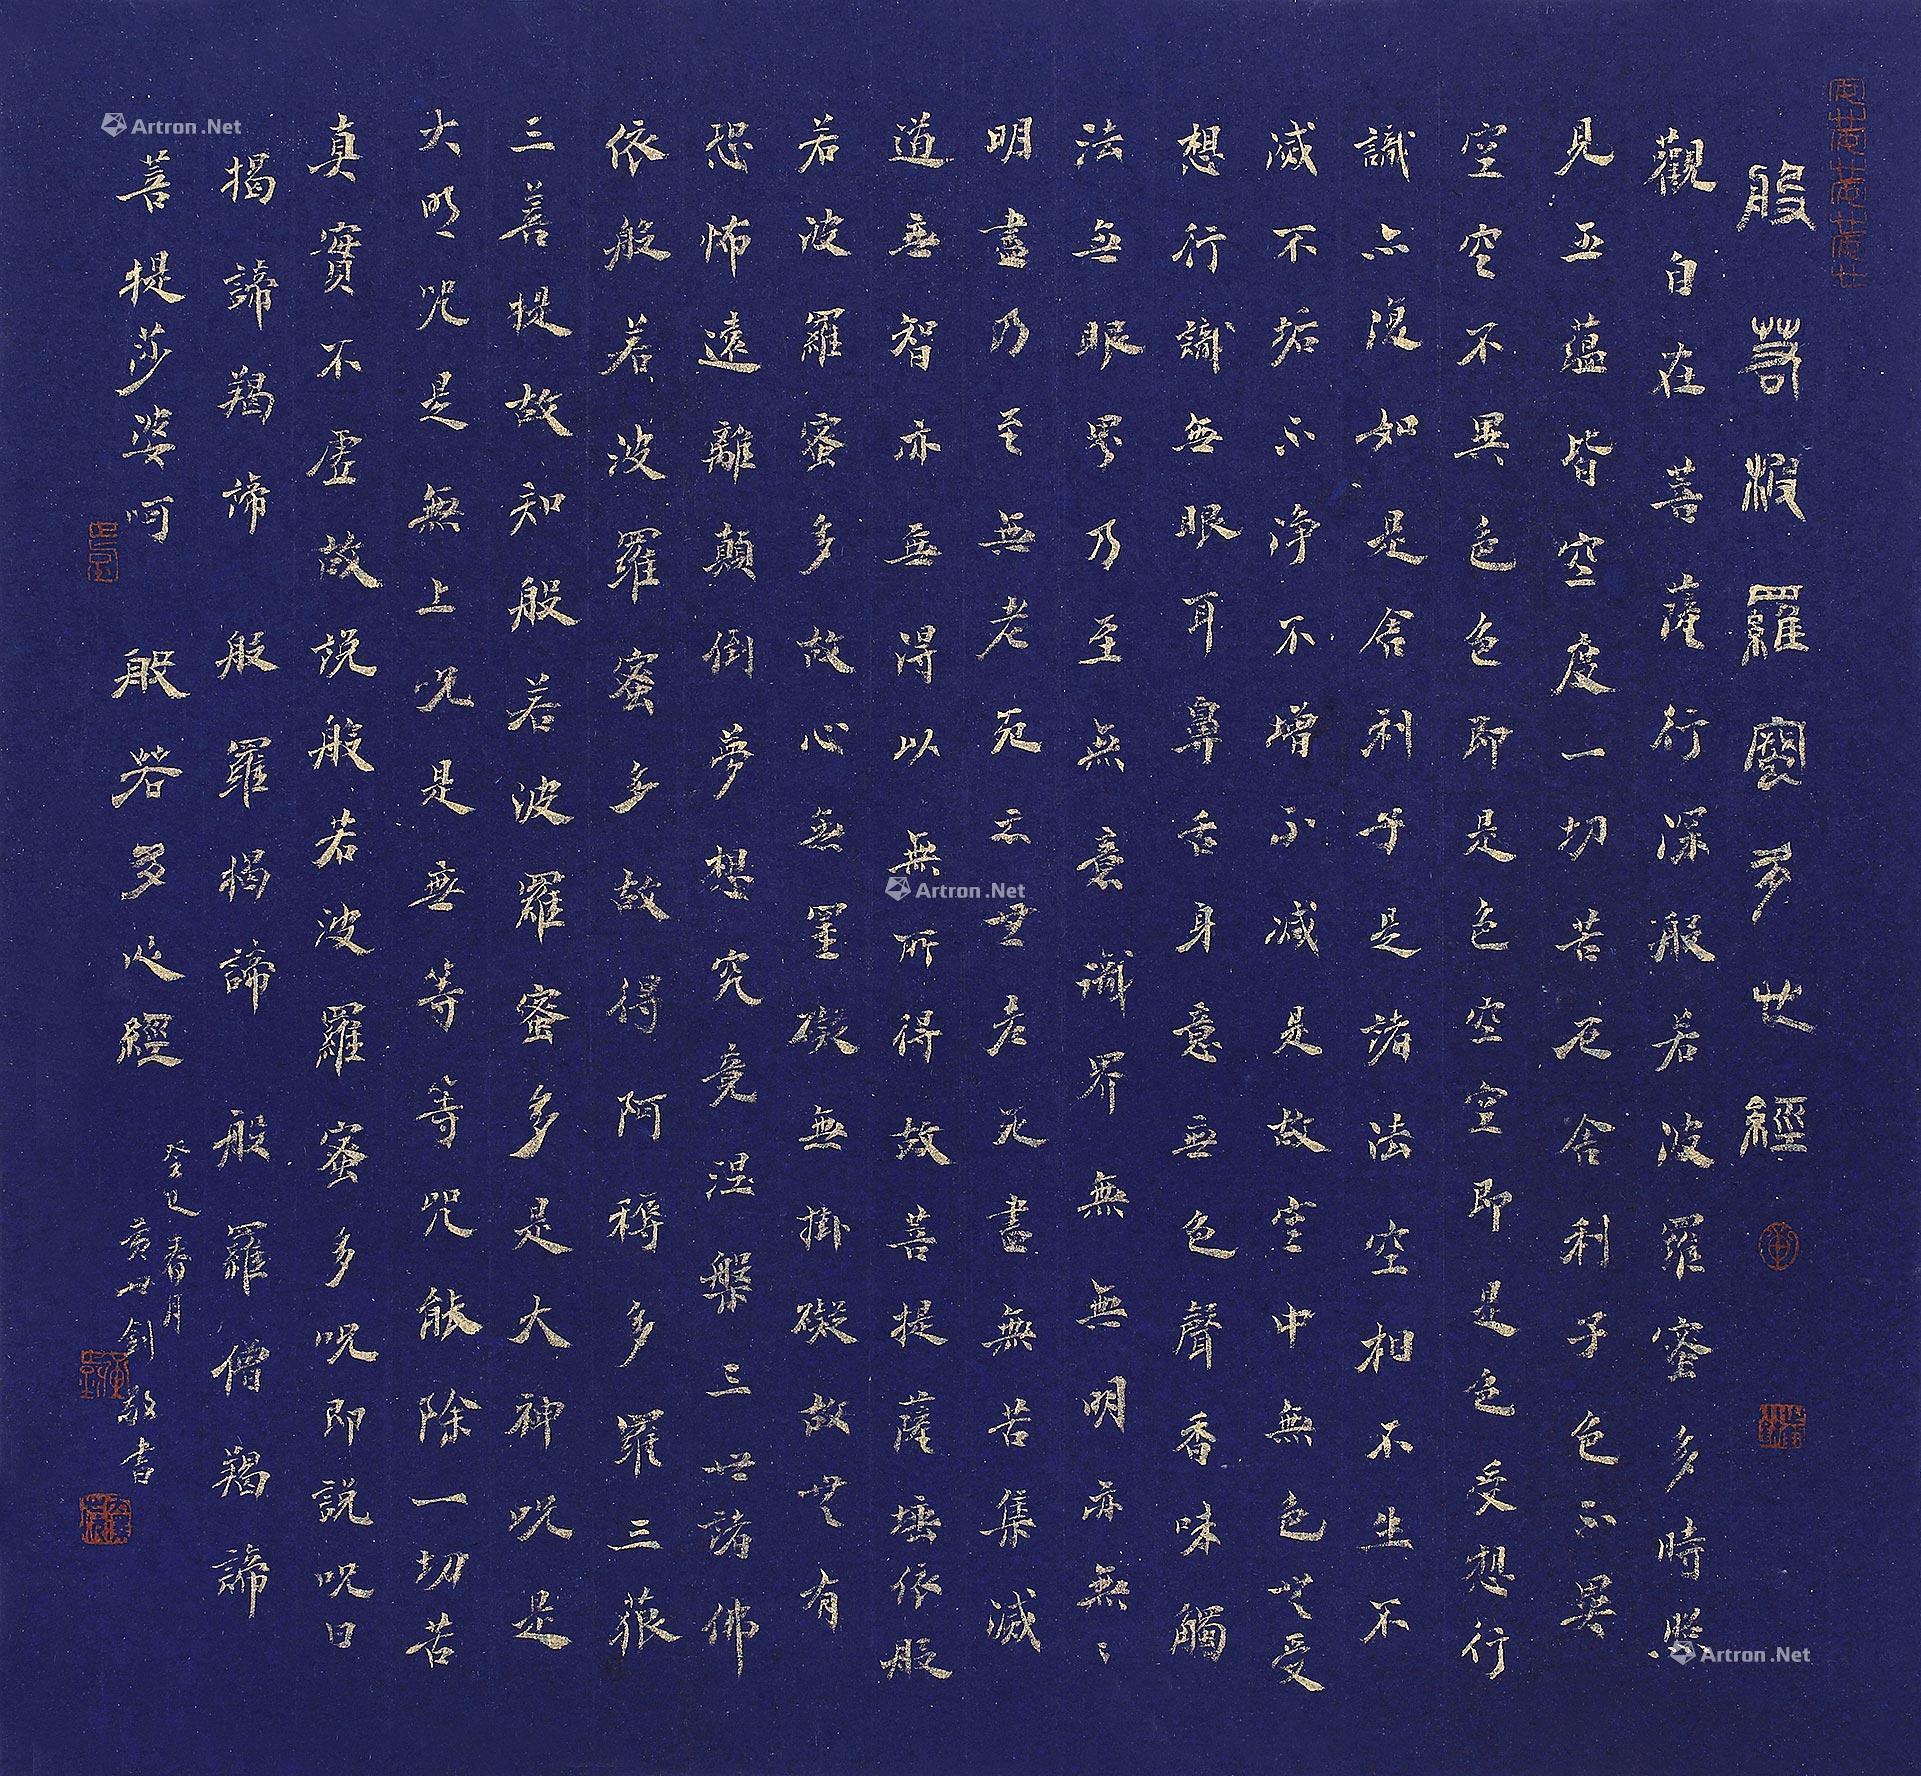 般若波羅蜜多心經
觀自在菩薩行深般若波羅蜜多時照
見五蘊皆空度一切苦厄舍利子色不異
空空不異色色即是色空空即是色受想行
識亦復如是舍利子是諸法空相不生不
滅不垢不淨不增不減是故空中無色無受
想行識無眼耳鼻舌身意無色聲香味觸
法無眼界乃至無意識界無無明亦無〻
明盡乃至無老死亦無老死盡無苦集滅
道無智亦無得以無所得故菩提薩埵依般
若波羅蜜多故心無罣礙無掛礙故無有
恐怖遠離顛倒夢想究竟涅槃三世諸佛
依般若波羅蜜多故得阿耨多羅三藐
三菩提故知般若波羅蜜多是大神呪是
大明呪是無上呪是無等等咒能除一切苦
真實不虛故說般若波羅蜜多呪即說呪曰
揭諦羯諦 般羅揭諦 般羅僧羯諦
菩提莎婆呵 般若多心經
癸巳春月
黃世釗敬書
Artron.Net
Artron.Net
Artron.Net